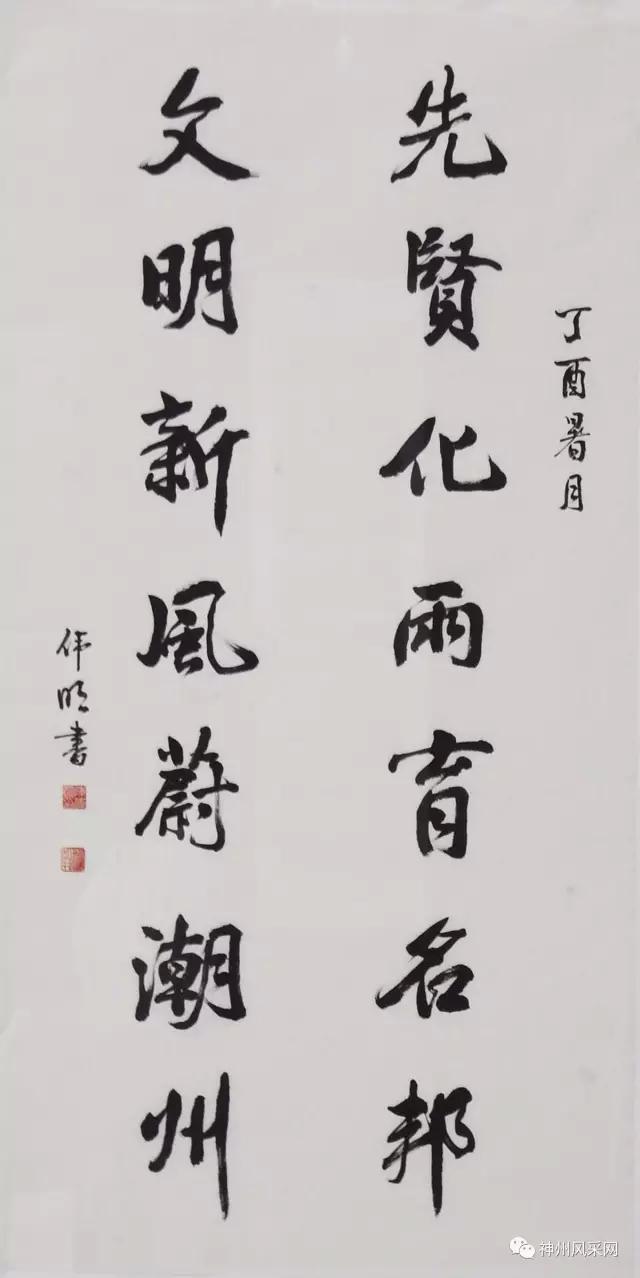 丁酉暑月
先賢化雨育名邦
文明新風蔚潮州
伟明書
神州风采网